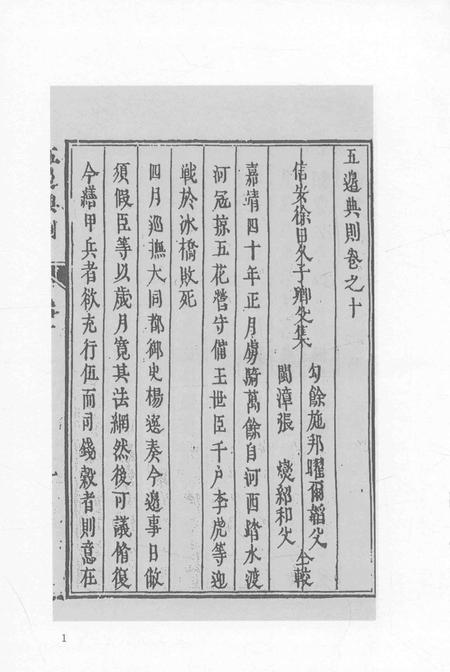 五邊典則卷之十
信安徐日久子卿父集
勾餘施邦曜爾韜父
閩漳張 燮紹和父
仝較
嘉靖四十年正月虜騎萬餘自河西踏水渡
河冦掠五花營守備王世臣千户李虎等迎
戰於冰橋敗死
四月廵撫大同都御史楊選奏今邊事日
須假臣等以歲月寬其法網然後可議脩復
今繕甲兵者欲充行伍而司錢穀者則意在
1